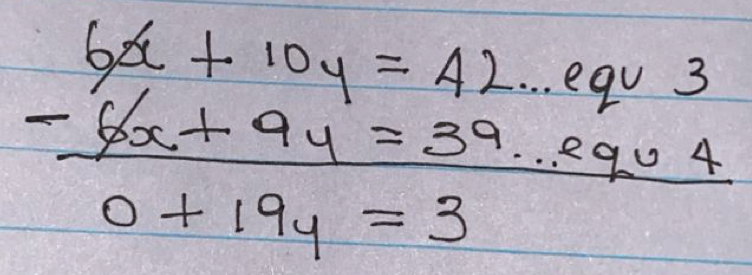 6x + 10y = 42...equ 3
- 6x + 9y = 39...equ 4
0 + 19y = 3